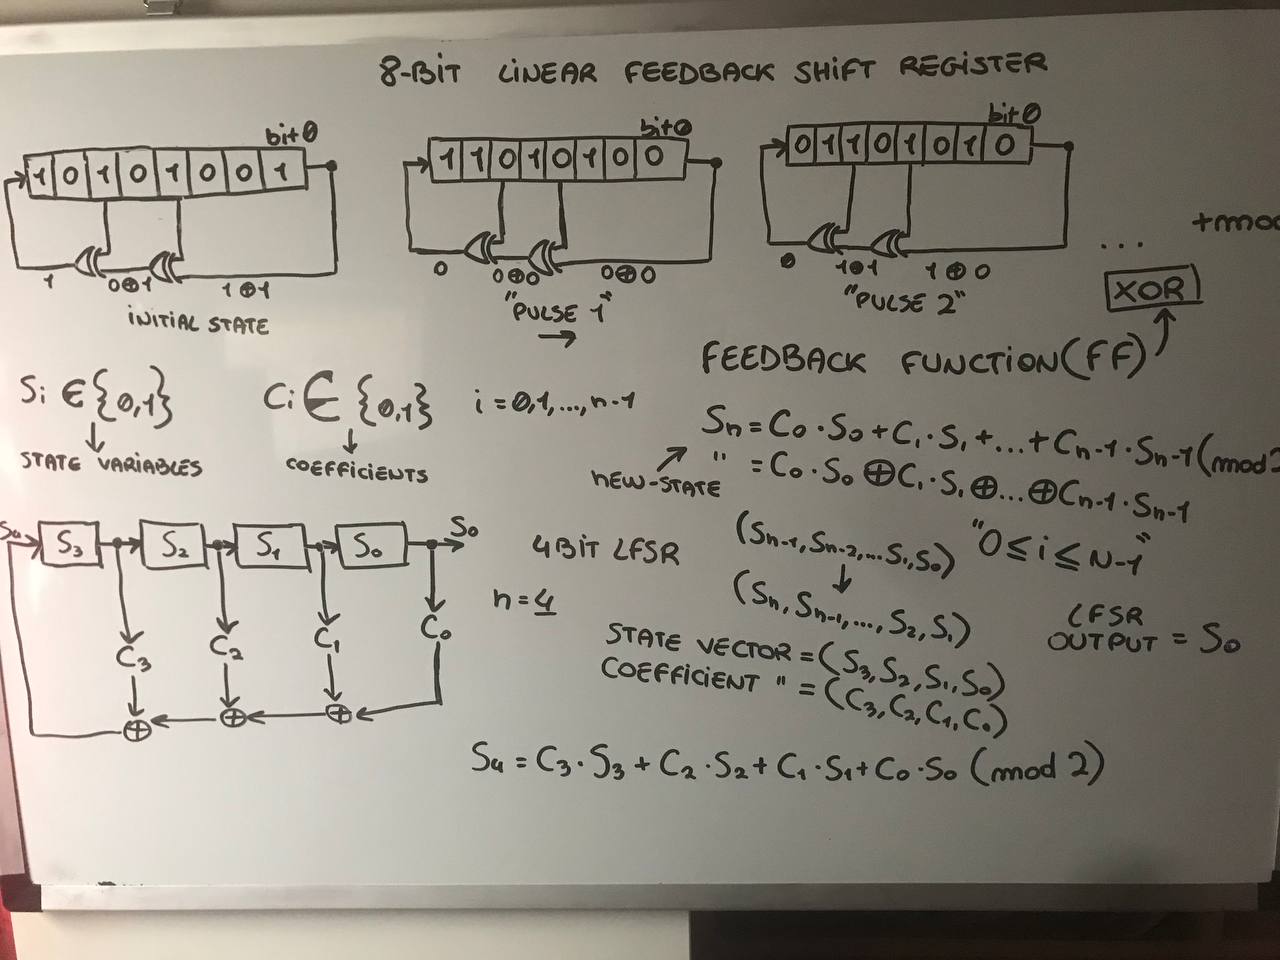 8-BIT LINEAR FEEDBACK SHIFT REGISTER
bit0
1 0 1 0 1 0 0 1
1
0⊕1
1⊕1
INITIAL STATE
bit0
1 1 0 1 0 1 0 0
0
0⊕0
0⊕0
"PULSE 1"
→
bit0
0 1 1 0 1 0 1 0
0
1⊕1
1⊕0
"PULSE 2"
...
+mod
XOR
FEEDBACK FUNCTION (FF)
Si ∈ {0,1}
STATE VARIABLES
Ci ∈ {0,1}
COEFFICIENTS
i = 0,1,...,n-1
Sn = C0·S0 + C1·S1 + ... + Cn-1·Sn-1 (mod 2
" = C0·S0 ⊕ C1·S1 ⊕ ... ⊕ Cn-1·Sn-1
NEW-STATE
"0 ≤ i ≤ N-1"
(Sn-1, Sn-2, ... S1, S0)
↓
(Sn, Sn-1, ..., S2, S1)
LFSR
OUTPUT = S0
S4 S3 S2 S1 S0 S0
C3 C2 C1 C0
⊕ ⊕ ⊕
4 BIT LFSR
n = 4
STATE VECTOR = (S3, S2, S1, S0)
COEFFICIENT " = (C3, C2, C1, C0)
S4 = C3·S3 + C2·S2 + C1·S1 + C0·S0 (mod 2)